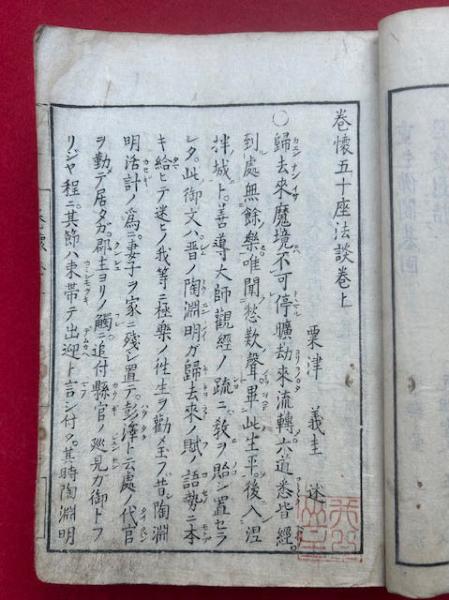 巻懐五十座法談巻上
粟津義圭述
〇歸去來魔境不可停曠劫來流轉六道悉皆經
到處無餘樂唯聞愁歎聲畢此生平後入涅
槃城ト。善導大師觀經ノ疏ニ敎ヲ貽シ置セラ
レタ。此御文ハ晋ノ陶淵明ガ歸去來ノ賦ノ語勢ニ本
キ給ヒテ迷ヒノ我等ニ極樂ノ往生ヲ勸メ玉フ昔陶淵
明活計ノ爲ニ妻子ヲ家ニ殘シ置テ彭澤ト云處ノ代官
ヲ勤テ居タガ。郡主ヨリノ觸ニ追付縣官ノ廵見ガ御トフ
リジヤ程ニ。其節ハ束帶テ出迎ト言シ付タ。其時陶淵明